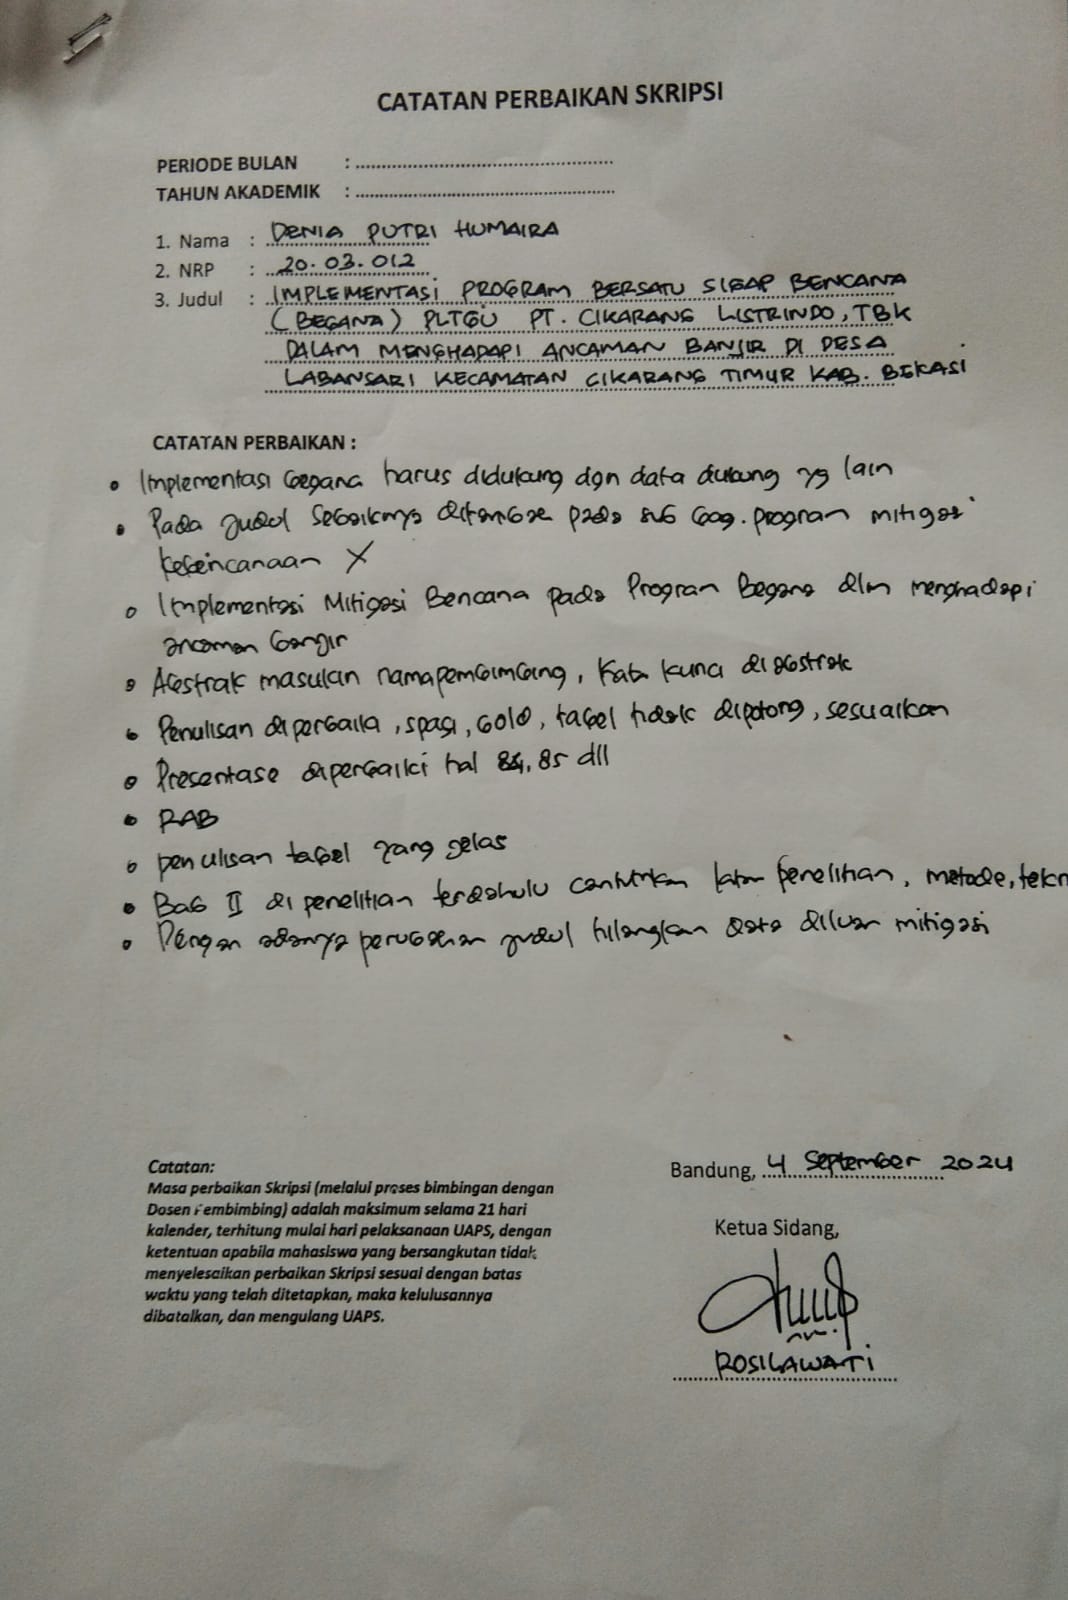 CATATAN PERBAIKAN SKRIPSI
PERIODE BULAN : ..................................................
TAHUN AKADEMIK : ..................................................
1. Nama : DENIA PUTRI HUMAIRA
2. NRP : 20.03.012
3. Judul : IMPLEMENTASI PROGRAM BERSATU SIGAP BENCANA
(BEGANA) PLTGU PT. CIKARANG LISTRINDO, TBK
DALAM MENGHADAPI ANCAMAN BANJIR DI DESA
LABANSARI KECAMATAN CIKARANG TIMUR KAB. BEKASI
CATATAN PERBAIKAN :
• Implementasi begana harus didukung dgn data dukung yg lain
• Pada judul sebaiknya pada sub bag. program mitigasi
kebencanaan X
• Implementasi Mitigasi Bencana pada Program Begana dlm menghadapi
ancaman banjir
• Abstrak masukan nama pembimbing, kata kunci di abstrak
• Penulisan diperbaiki, spasi, bold, tabel tidak dipotong, sesuaikan
• Presentase diperbaiki hal 84, 85 dll
• RAB
• penulisan tabel yang jelas
• Bab II di penelitian terdahulu cantumkan penelitian, metode, tekn
• Dengan adanya perubahan judul hilangkan data diluar mitigasi
Catatan:
Masa perbaikan Skripsi (melalui proses bimbingan dengan
Dosen Pembimbing) adalah maksimum selama 21 hari
kalender, terhitung mulai hari pelaksanaan UAPS, dengan
ketentuan apabila mahasiswa yang bersangkutan tidak
menyelesaikan perbaikan Skripsi sesuai dengan batas
waktu yang telah ditetapkan, maka kelulusannya
dibatalkan, dan mengulang UAPS.
Bandung, 4 September 2024
Ketua Sidang,
ROSILAWATI